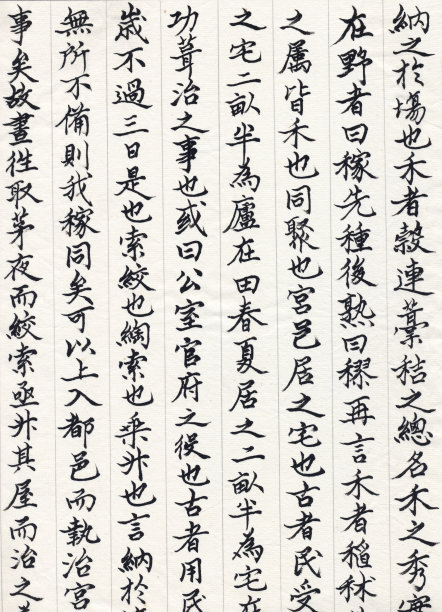 納之於場也禾者穀連藁秸之總名禾之秀實
在野者曰稼先種後熟曰穋再言禾者稻秫
之属皆禾也同聚也宮邑居之宅也古者民受
之宅二畝半為廬在田春夏居之二畝半為宅
功葺治之事也或曰公室官府之役也古者用民
歲不過三日是也索絞也綯索也乗升也言納於
無所不備則我稼同矣可以上入都邑而執治宮
事矣故晝徃取茅夜而絞索亟升其屋而治之